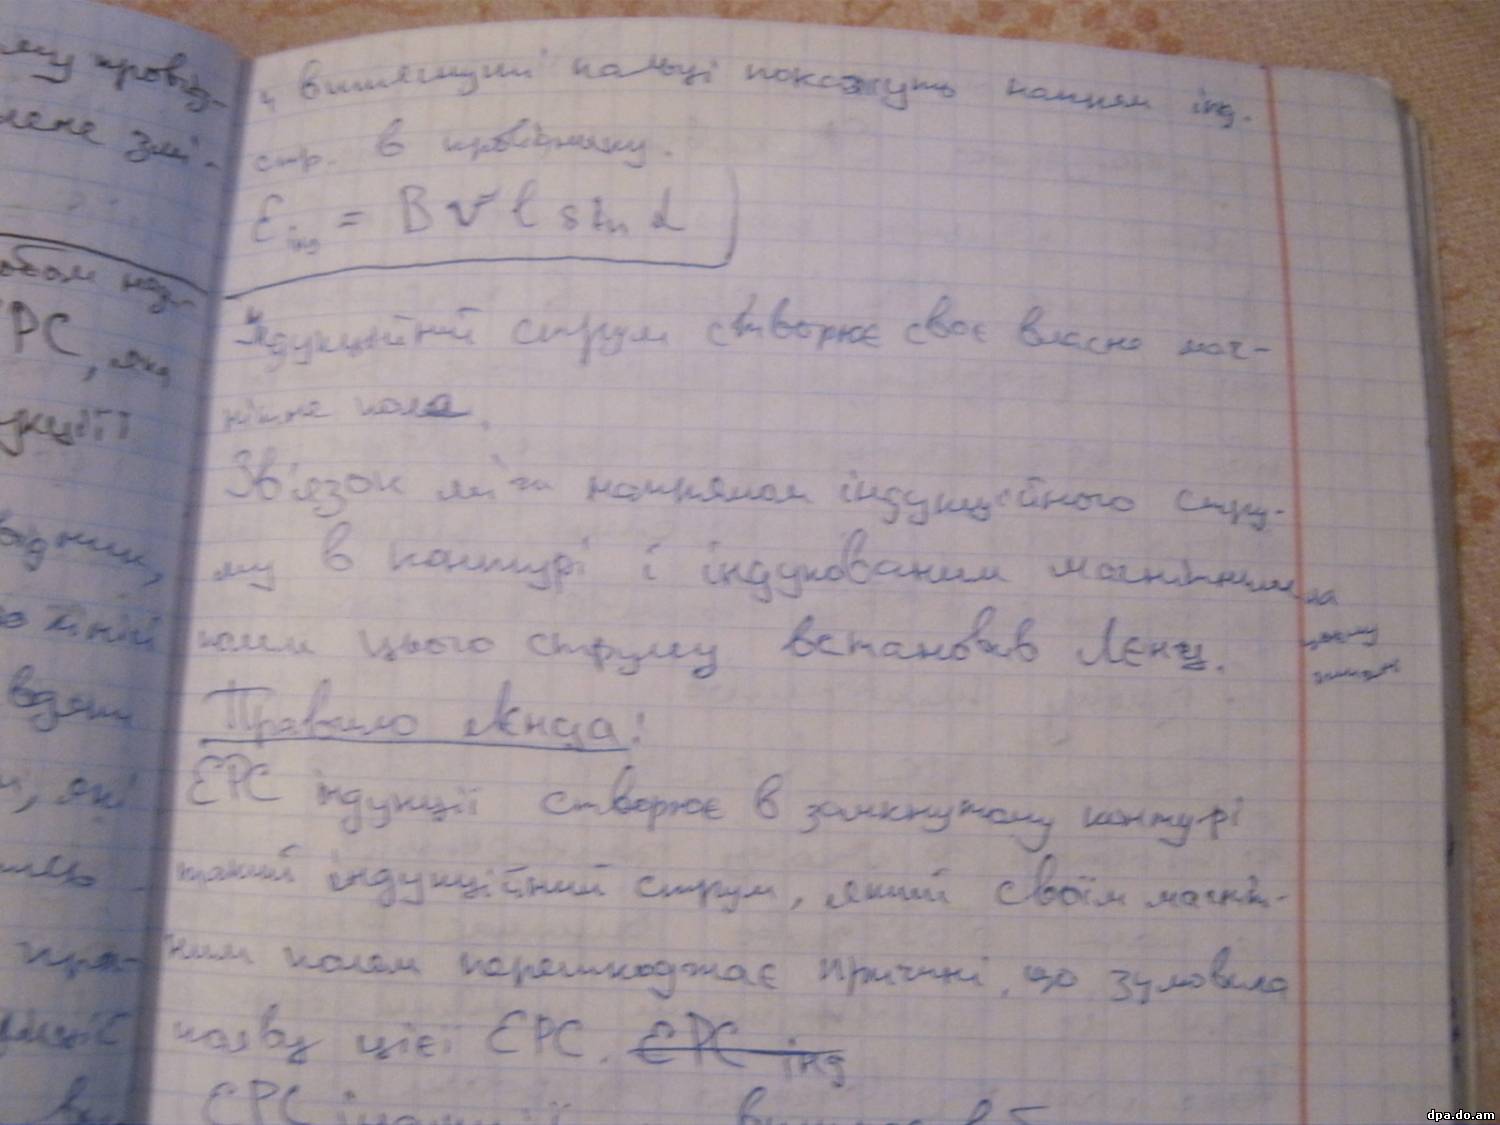 му провід-
лене змі-
РС, яка
укції
відник,
ліній
взяти
і, які
4 витягнуті пальці покажуть напрям інд.
стр. в провіднику.
Ɛінд = B v l sin α
Індукційний струм створює своє власне маг-
нітне поле.
Зв'язок між напрямом індукційного стру-
му в контурі і індукованим магнітним
полем цього струму встановив Лєнц.
Правило Лєнца:
ЕРС індукції створює в замкнутому контурі
такий індукційний струм, який своїм магніт-
ним полем перешкоджає причині, що зумовила
появу цієї ЕРС. ЕРС інд
ЕРС індукції
dpa.do.am